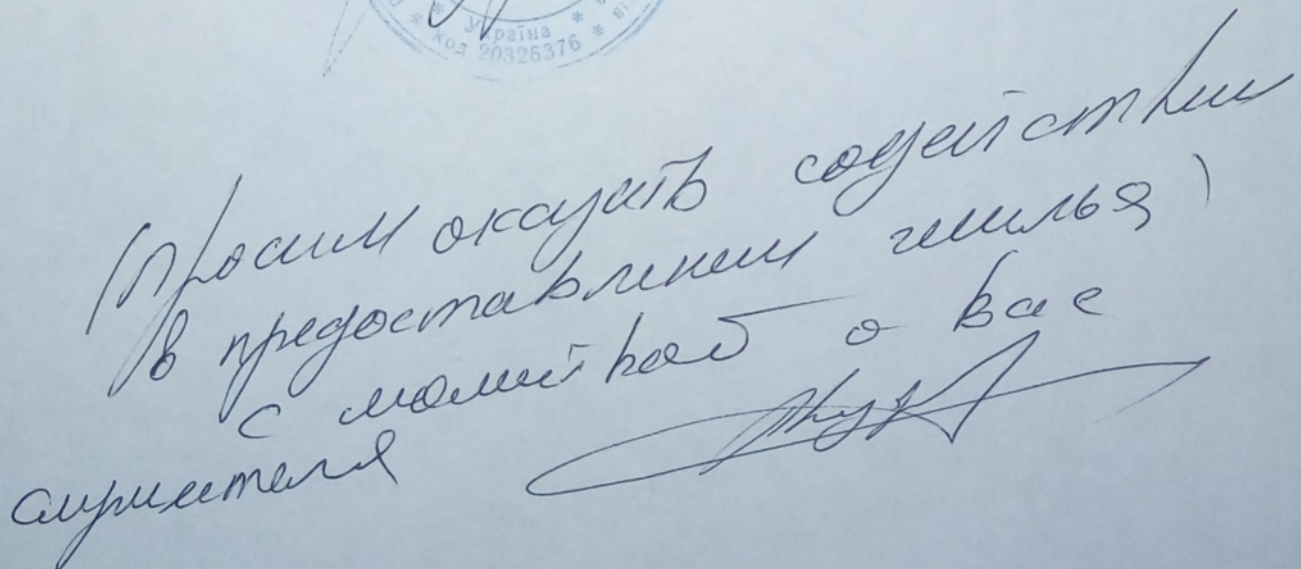 * Україна *
* код 20326376 *
Просим оказать содействии
в предоставлении жилья
с молитвой о вас
служителя